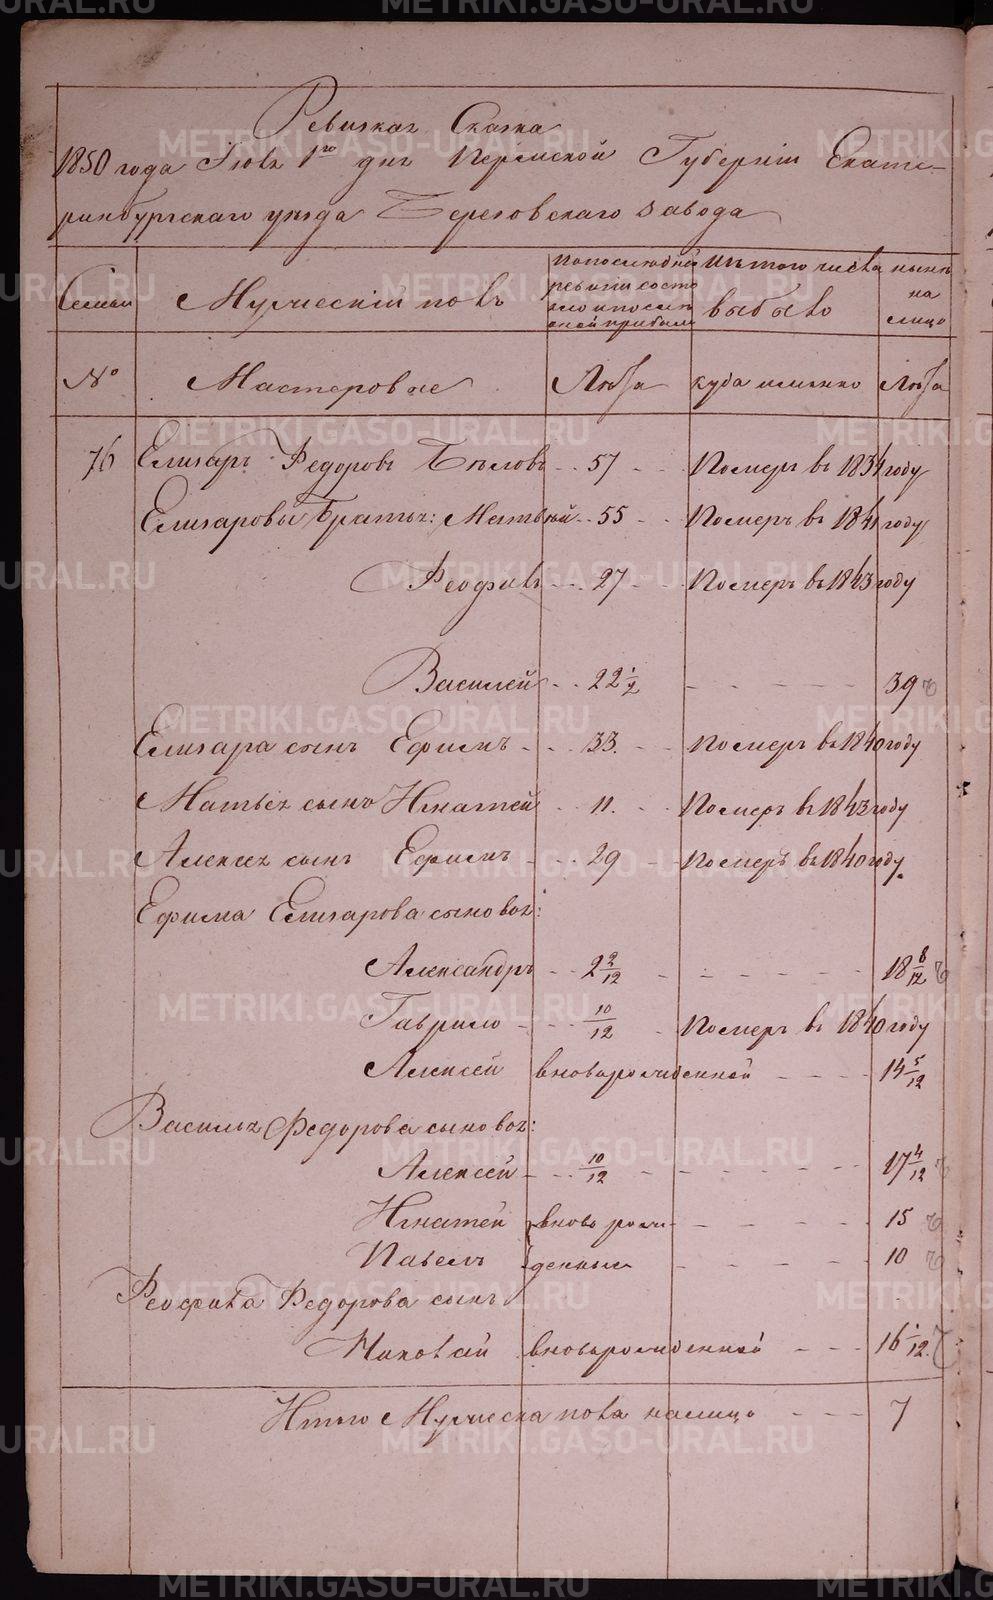 Ревизкая Сказка
1850 года Июля 1го дня Пермской Губернiи Екате-
ринбургскаго уезда Березовскаго завода
Семьи
Мужескiй полъ
По последней
ревизiи состо
яло и после
оной прибыло
Изъ того числа
выбыло
ныне
на
лицо
№
Мастеровые
Лѣта
куда именно
Лѣта
76 Елизаръ Федоровъ Беловъ - - 57 - - Померъ въ 1834 году
Елизаровы Братья: Матвей - - 55 - - Померъ въ 1841 году
Феофилъ - - 27 - - Померъ въ 1843 году
Василей - - 22 1/2 - - - - - 39
Елизара сынъ Ефимъ - - 33. - - Померъ въ 1840 году
Матвея сынъ Игнатей - - 11. - - Померъ въ 1843 году
Алексея сынъ Ефимъ - - - 29 - - Померъ въ 1840 году.
Ефима Елизарова сыновья:
Александръ - - 2 2/12 - - - - - - 18 8/12
Гаврило - - - 10/12 - Померъ въ 1840 году
Алексей вновьрожденной - - - - 14 5/12
Василья Федорова сыновья:
Алексей - - - 10/12 - - - - - - - 17 4/12
Игнатей вновь рож- - - - - - 15
Павелъ денные - - - - - 10
Феофила Федорова сынъ
Николай вновьрожденной - - - 16 1/12.
Итого Мужеска пола налицо - - - 7
METRIKI.GASO-URAL.RU